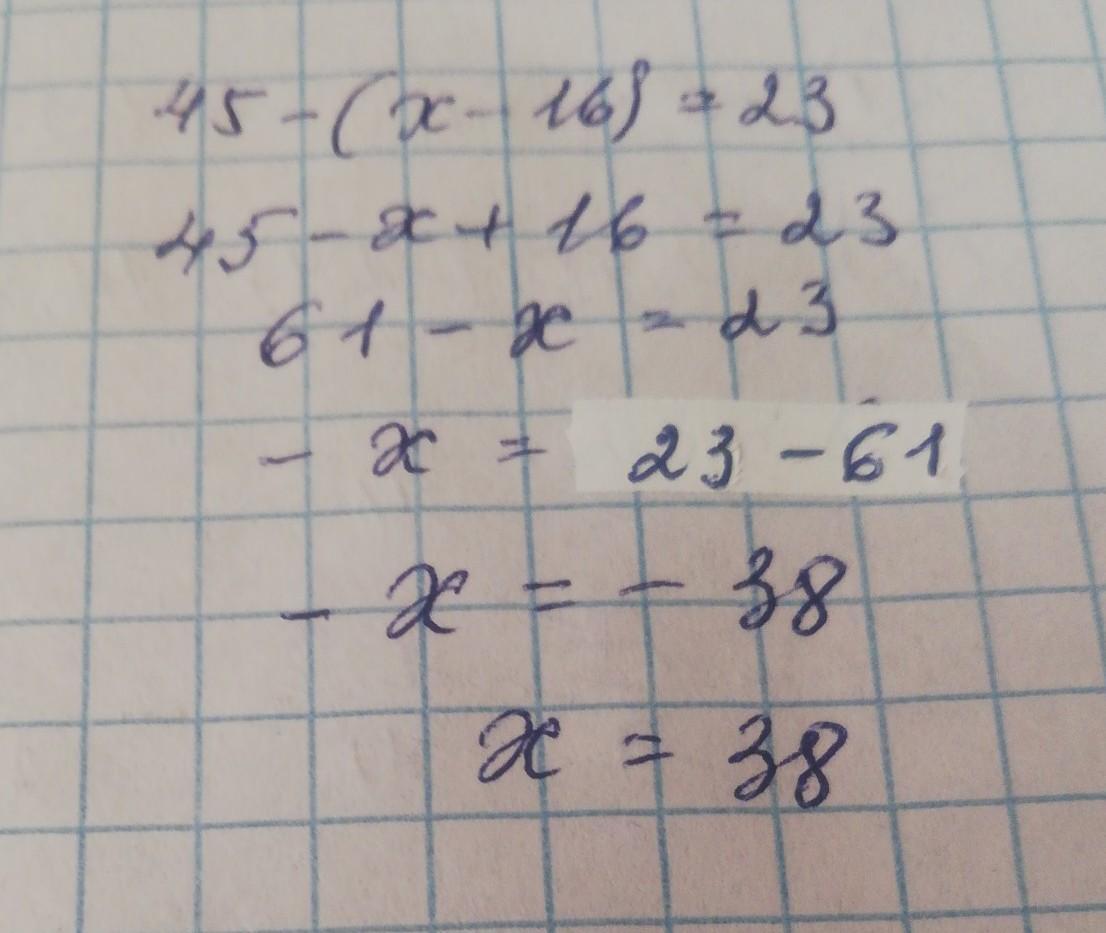 45 - (x - 16) = 23
45 - x + 16 = 23
61 - x = 23
- x = 23 - 61
- x = - 38
x = 38